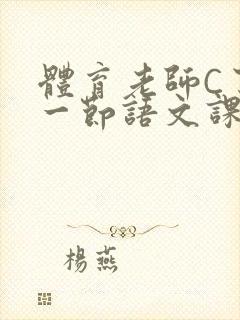 體育老師C
一節語文課
楊燕